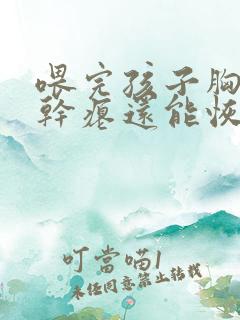 喂完孩子胸
幹瘪還能恢
叮當喵1
未经同意禁止转载